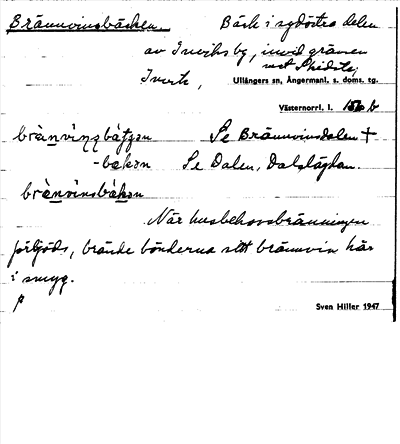 Brännvinsbäcken. Bäck i sydöstra delen
av Inviks by, invid gränsen
mot
Invik, Ullångers sn, Ångermanl. s. doms. tg.
Västernorrl. l. b
brànvìnsbátɟən Se Brännvinsdalen +
-bɛkən Se Dalen, Dalslåghan.
brànvìnsbɛ́kən
När husbehovsbränningen
förbjöds, brände bönderna sitt brännvin här
i smyg.
Sven Hiller 1947